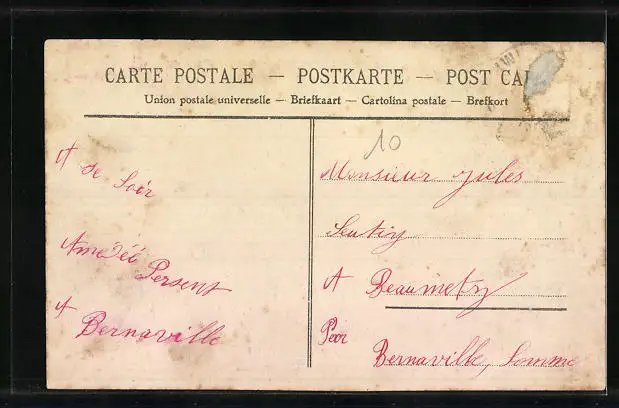 CARTE POSTALE — POSTKARTE — POST CA
Union postale universelle — Briefkaart — Cartolina postale — Brefkort
10
A
de Soir
Amedéé Persent
A
Bernaville
Monsieur Jules
A Beaumetz
Par
Bernaville, Somme